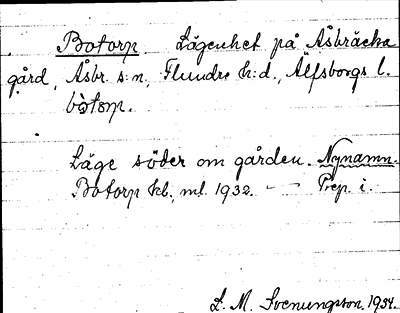 Botorp Lägenhet på Åsbräcka
gård, Åsbr. s:n, Flundre h:d., Älfsborgs l.
bòtorp.
Läge söder om gården. Nynamn.
Botorp kb., ml. 1932. - - Prep. i.
L. M. Svenungsson. 1934.